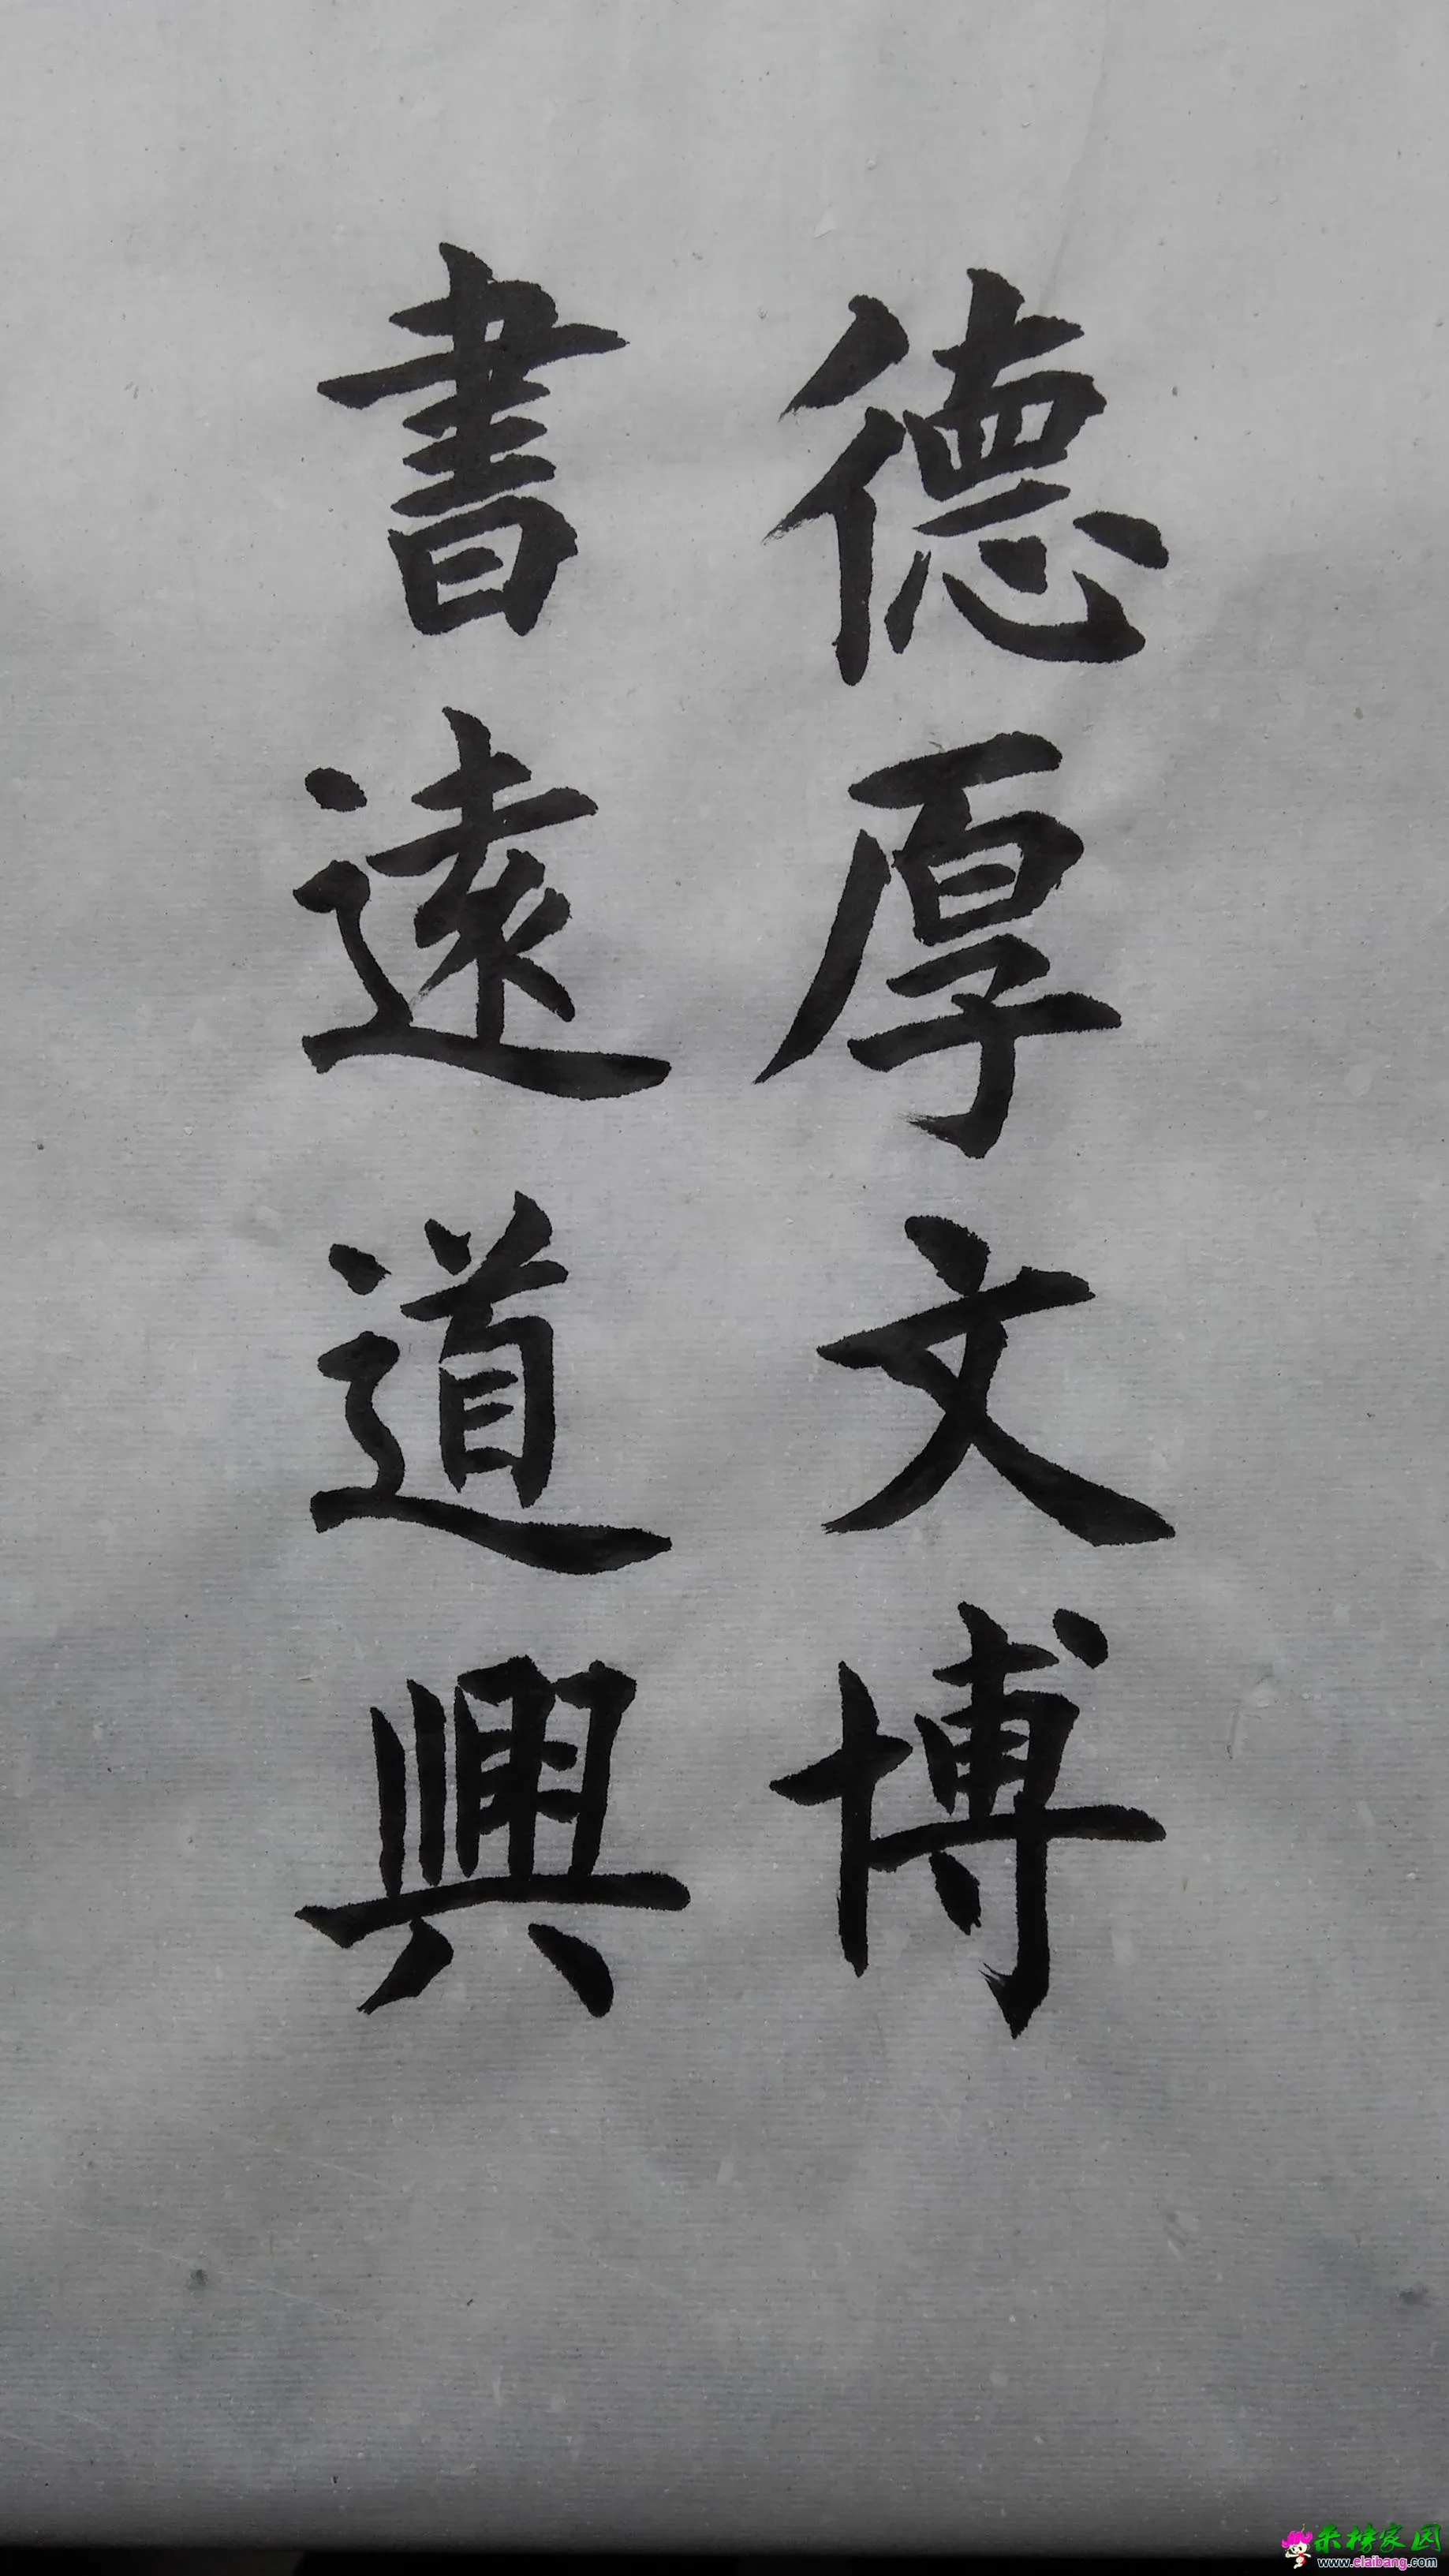 德厚文博
書遠道興
来榜家园
www.elaibang.com